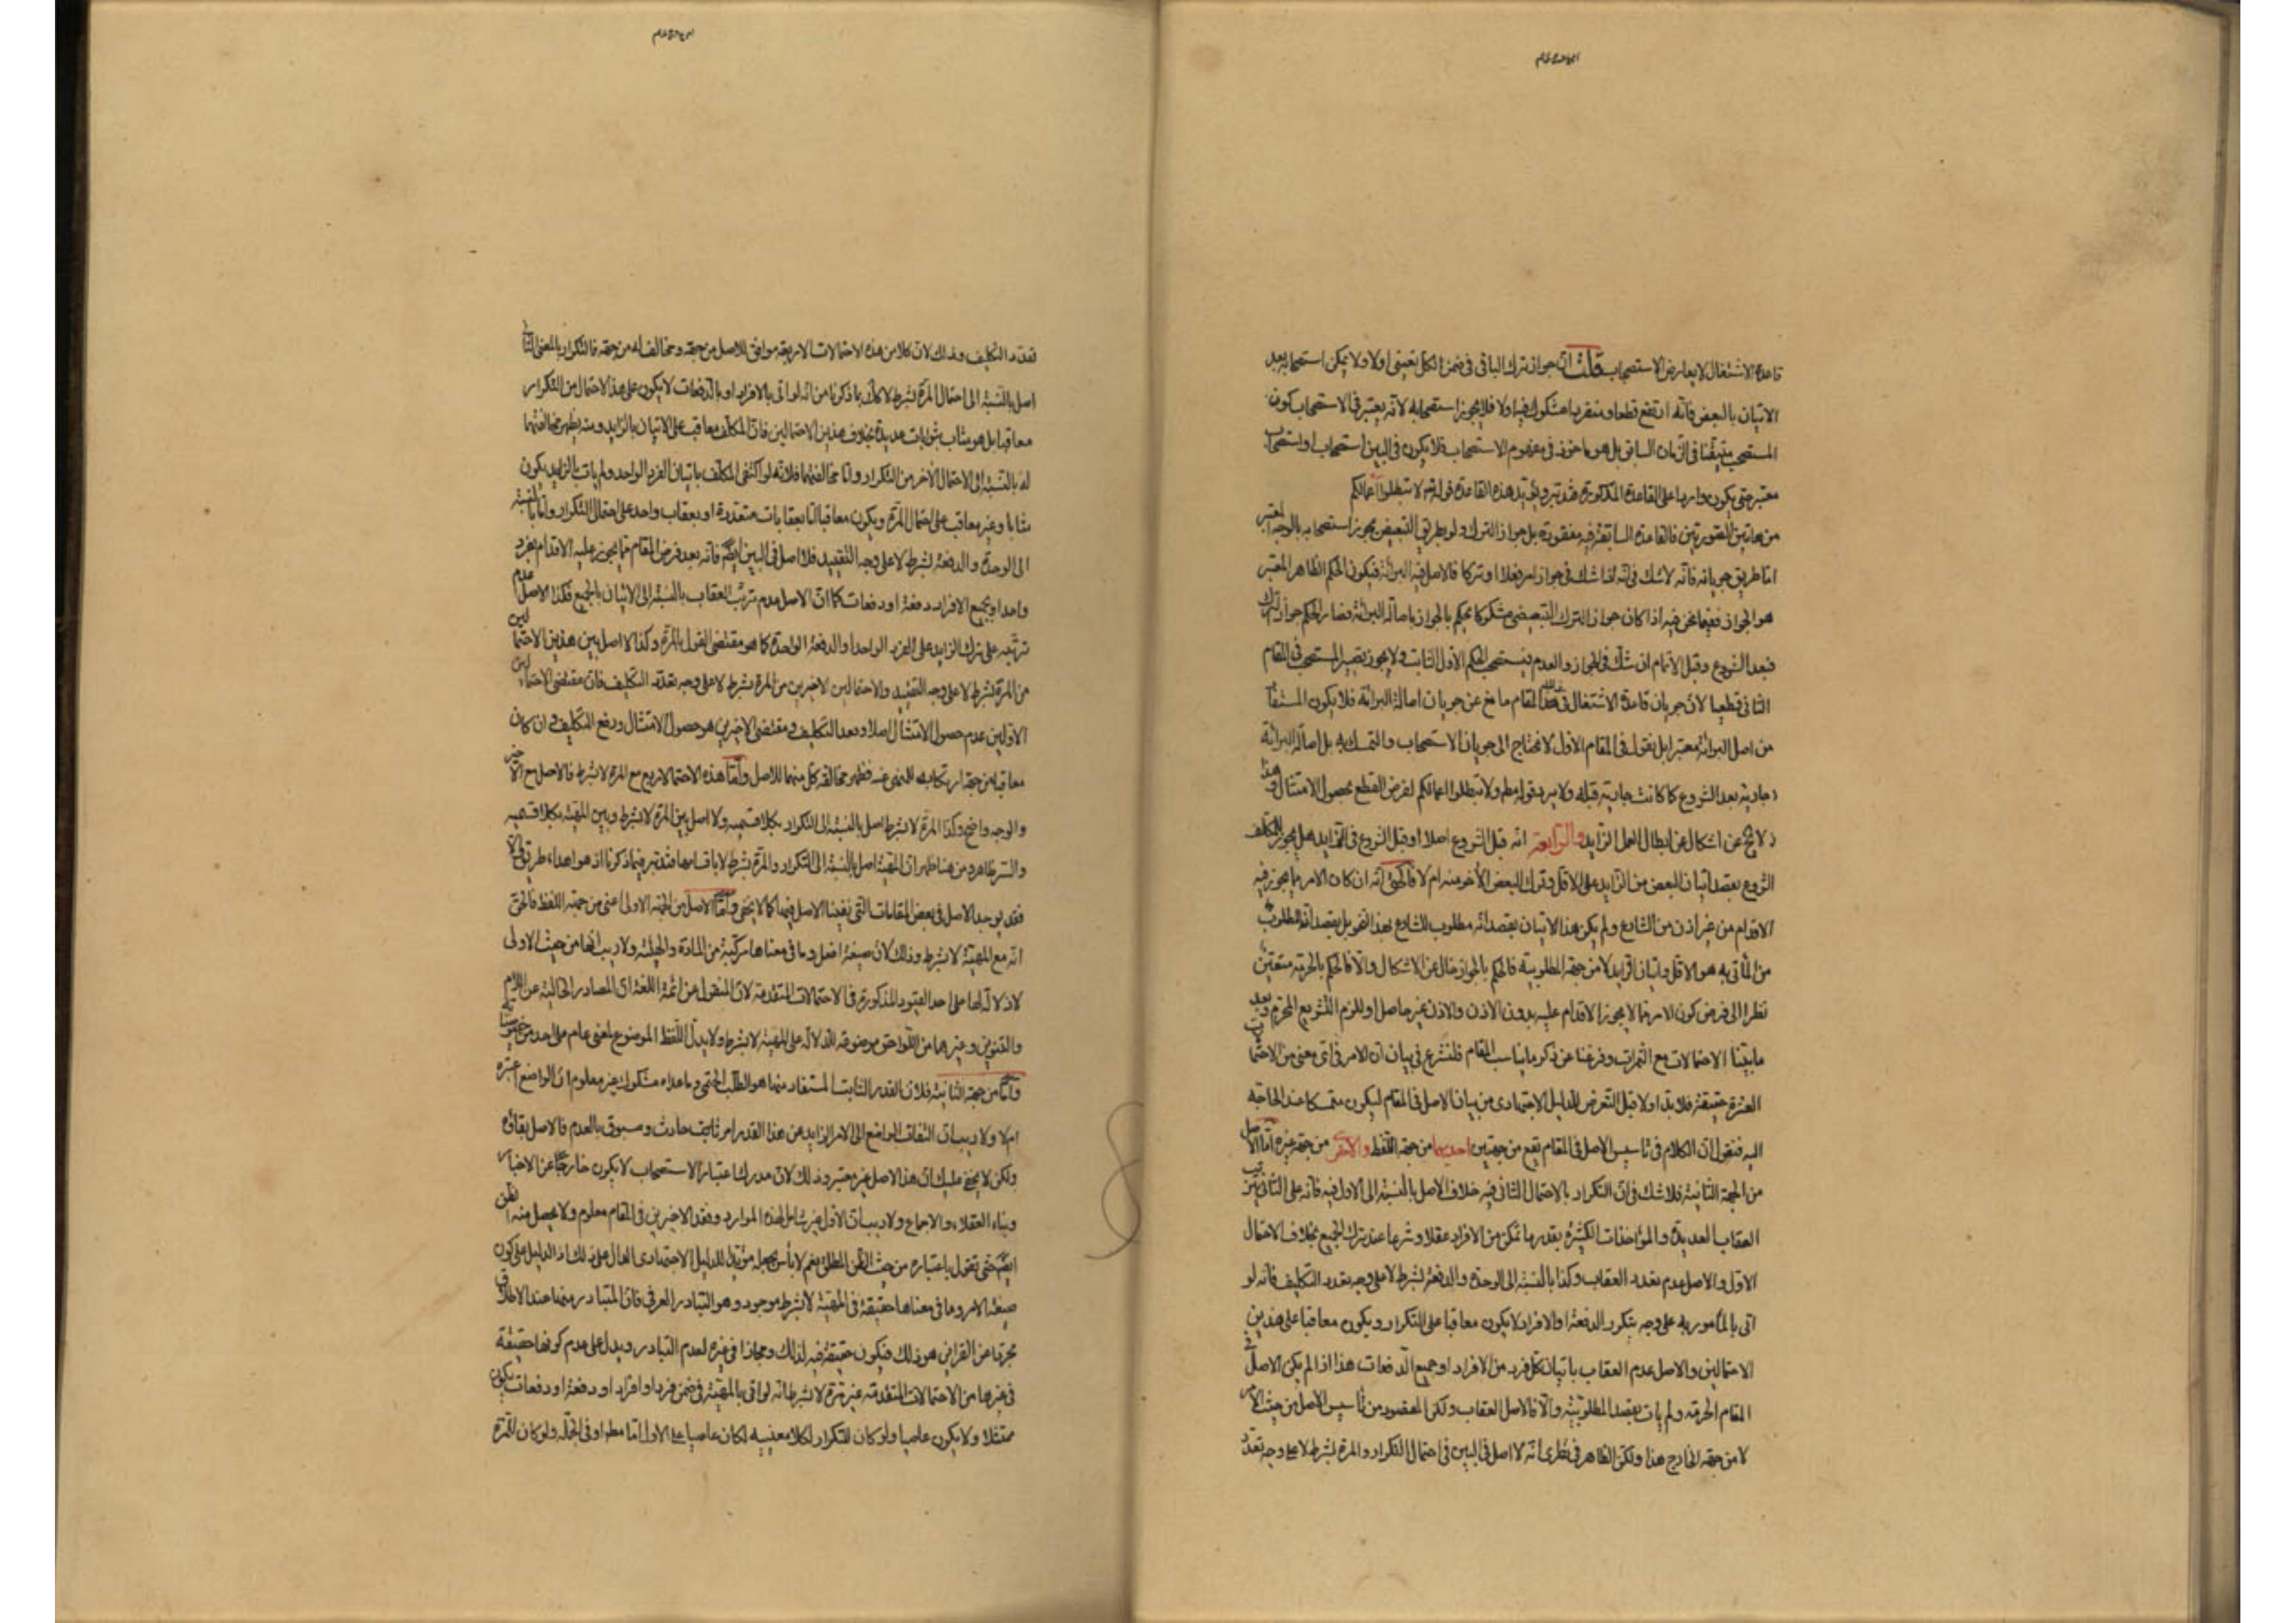 قاعدة الاشتغال لا يعارض الاستصحاب قلت ان جواز ترك الباقى فى ضمن الكل يقينى اولا ولا يمكن استصحابه بعد
الاتيان بالبعض فانه ارتفع قطعا ومنفردا مشكوك فيه اولا فلا يجوز استصحابه لانه يعتبر فى الاستصحاب كون
المستصحب متيقنا فى الزمان السابق بل هو ماخوذ فى مفهوم الاستصحاب فلا يكون فى البين استصحاب او استصحاب
معتبر حتى يكون واردا على القاعدة المذكورة فتدبر ويؤيد هذه القاعدة قوله تعالى لا تبطلوا اعمالكم
من هاتين الصورتين فالقاعدة السابقة فيه مفقودة بل جواز الترك ولو بطريق التبعيض يجوز استصحابه بالوجه المعتبر
اما طريق جريانه فانه لا شك فى انه اذا شك فى جواز امر فعلا او تركا فالاصل فيه البرائة فيكون الحكم الظاهر المعتبر
هو الجواز ففيما نحن فيه اذا كان جواز الترك التبعيضى مشكوكا يحكم بالجواز باصالة البرائة فصار الحكم جواز الترك
فبعد الشروع وقبل الاتمام ان شك فى الجواز والعدم فيستصحب الحكم الاول الثابت ولا يجوز تغيير المستصحب فى المقام
الثانى قطعيا لان جريان قاعدة الاشتغال فى هذا المقام مانع عن جريان اصالة البرائة فلا يكون المستفا
من اصل البرائة معتبرا بل نقول فى المقام الاول لا نحتاج الى جريان الاستصحاب والتمسك به بل اصالة البرائة
جارية بعد الشروع كما كانت جارية قبله ولا يرد قوله تعالى ولا تبطلوا اعمالكم لفرض القطع بحصول الامتثال وهذا
لا يخ عن اشكال عن ابطال العمل الزايد والرابعة انه قبل الشروع اصلا او قبل الشروع فى الزايد هل يجوز للمكلف
الشروع بقصد اتيان البعض من الزايد على الاقل وترك البعض الآخر منه ام لا فالحق انه ان كان الامر مما يجوز فيه
الاقدام من غير اذن من الشارع ولم يكن هذا الاتيان بقصد انه مطلوب للشارع بهذا النحو بل بقصد ان المطلوب
من المأتى به هو الاقل واتيان الزايد لا من جهة المطلوبية فالحكم بالجواز خال عن الاشكال والا فالحكم بالحرمة متعين
نظرا الى فرض كون الامر مما لا يجوز الاقدام عليه بدون الاذن والاذن غير حاصل او للزوم التشريع المحرم وبعد
ما بينا الاحتمالات مع الثمرات وفرغنا عن ذكر ما يناسب المقام فلنشرع فى بيان ان الامر فى اى معنى من الاحتما
العشرة حقيقة فلا بد اولا قبل التعرض للدليل الاجتهادى من بيان الاصل فى المقام ليكون متمسكا عند الحاجة
اليه فنقول ان الكلام فى تاسيس الاصل فى المقام يقع من جهتين احديهما من جهة اللفظ والاخرى من جهة غيره اما الاصل
من الجهة الثانية فلا شك فى ان التكرار بالاحتمال الثانى فيه خلاف الاصل بالنسبة الى الاول فيه فانه على الثانى يترتب
العقاب العديدة والمؤاخذات الكثيرة بقدر ما تمكن من الافراد عقلا وشرعا عند ترك الجميع بخلاف الاحتمال
الاول والاصل عدم تعدد العقاب وكذا بالنسبة الى الوحدة والدفعة بشرط لا على وجه تعدد التكليف فانه لو
اتى بالمأمور به على وجه يتكرر الدفعة او الافراد لا يكون معاقبا على التكرار ويكون معاقبا على هذين
الاحتمالين والاصل عدم العقاب باتيان كل فرد من الافراد او جميع الدفعات هذا اذا لم يكن الاصل فى
المقام الحرمة ولم يات بقصد المطلوبية والا فالاصل العقاب ولكن المقصود من تأسيس الاصل من حيث الامر
لا من جهة الخارج هذا ولكن الظاهر فى نظرى انه لا اصل فى البين فى احتمال التكرار والمرة بشرط لا على وجه تعدد
تعدد التكليف وذلك لان كلا من هذه الاحتمالات الاربعة موافق للاصل من جهة ومخالف له من جهة فالتكرار بالمعنى الثانى
اصل بالنسبة الى احتمال المرة بشرط لا كما ذكرنا من انه لو اتى بالافراد او بالدفعات لا يكون على هذا الاحتمال من التكرار
معاقبا بل هو مثاب بثوابات عديدة بخلاف هذين الاحتمالين فان المكلف معاقب على الاتيان بالزايد ومنه يظهر مخالفتهما
له بالنسبة الى الاحتمال الآخر من التكرار واما مخالفتهما فلانه لو اكتفى المكلف باتيان الفرد الواحد ولم يات بالزايد يكون
مثابا وغير معاقب على احتمال المرة ويكون معاقبا اما بعقابات متعددة او بعقاب واحد على احتمال التكرار واما بالنسبة
الى الوحدة والدفعة بشرط لا على وجه التقييد فلا اصل فى البين ايضا فانه بعد فرض المقام مما يجوز عليه الاقدام بفرد
واحد او بجميع الافراد دفعة او دفعات كما ان الاصل عدم ترتب العقاب بالنسبة الى الاتيان بالجميع فكذا الاصل عدم
ترتبه على ترك الزايد على الفرد الواحد او الدفعة الواحدة كما هو مقتضى القول بالمرة وكذا لا اصل بين هذين الاحتمالين
من المرة بشرط لا على وجه التقييد والاحتمالين الاخيرين من المرة بشرط لا على وجه تعدد التكليف فان مقتضى الاحتمالين
الاولين عدم حصول الامتثال اصلا وبعد التكليف ومقتضى الاخيرين هو حصول الامتثال ورفع التكليف وان كان
معاقبا من جهة ارتكابه للمنهى عنه فظهر مخالفة كل منهما للاصل واما هذه الاحتمالات الاربع مع المرة لا بشرط فالاصل مع الاخير
والوجه واضح وكذا المرة لا بشرط اصل بالنسبة الى التكرار بكلا قسميه ولا اصل بين المرة لا بشرط وبين المهية بكلا قسميه
والسر ظاهر ومن هنا ظهر ان المهية اصل بالنسبة الى التكرار والمرة بشرط لا باقسامها فتدبر فيما ذكرنا
فقد يوجد الاصل فى بعض المقامات التى نفينا الاصل فيها كما لا يخفى واما الاصل من الجهة الاولى اعنى من جهة اللفظ فالحق
انه مع المهية لا بشرط وذلك لان صيغة افعل وما فى معناها مركبة من المادة والهيئة ولا ريب انها من حيث الاولى
لا دلالة لها على احد القيود المذكورة فى الاحتمالات المتقدمة لان المنقول عن ائمة اللغة ان المصادر الخالية عن اللام
والتنوين وغيرهما من اللواحق موضوعة للدلالة على المهية لا بشرط ولا يدل اللفظ الموضوع لمعنى عام على احد من خصوصياته
واما من جهة الثانية فلان القدر الثابت المستفاد منها هو الطلب الحتمى وما عداه مشكوك غير معلوم ان الواضع اعتبره
ام لا ولا ريب ان التفات الواضع الى الامر الزايد عن هذا القدر امر حادث ومسبوق بالعدم فالاصل بقاؤه
ولكن لا يخفى عليك ان هذا الاصل غير معتبر وذلك لان مدرك اعتبار الاستصحاب لا يكون خارجا عن الاخبار
وبناء العقلاء والاجماع ولا ريب ان الاول غير شامل لهذه الموارد وفقد الاخيرين فى المقام معلوم ولا يحصل منه الظن
ايضا حتى نقول باعتباره من حيث الظن المطلق نعم لا بأس بجعله مؤيدا للدليل الاجتهادى الدال على ذلك اذ الدليل على كون
صيغة الامر وما فى معناها حقيقة فى المهية لا بشرط موجود وهو التبادر العرفى فان المتبادر منها عند الاطلاق
مجردا عن القراين هو ذلك فيكون حقيقة فيه لذلك ومجازا فى غيره لعدم التبادر ويدل على عدم كونها حقيقة
فى غيرها من الاحتمالات المتقدمة غير مرة لا بشرط انه لو اتى بالمهية فى ضمن فرد او افراد او دفعة او دفعات يكون
ممتثلا ولا يكون عاصيا ولو كان للتكرار بكلا معنييه لكان عاصيا على الاول اما مطلقا او فى الجملة ولو كان للمرة